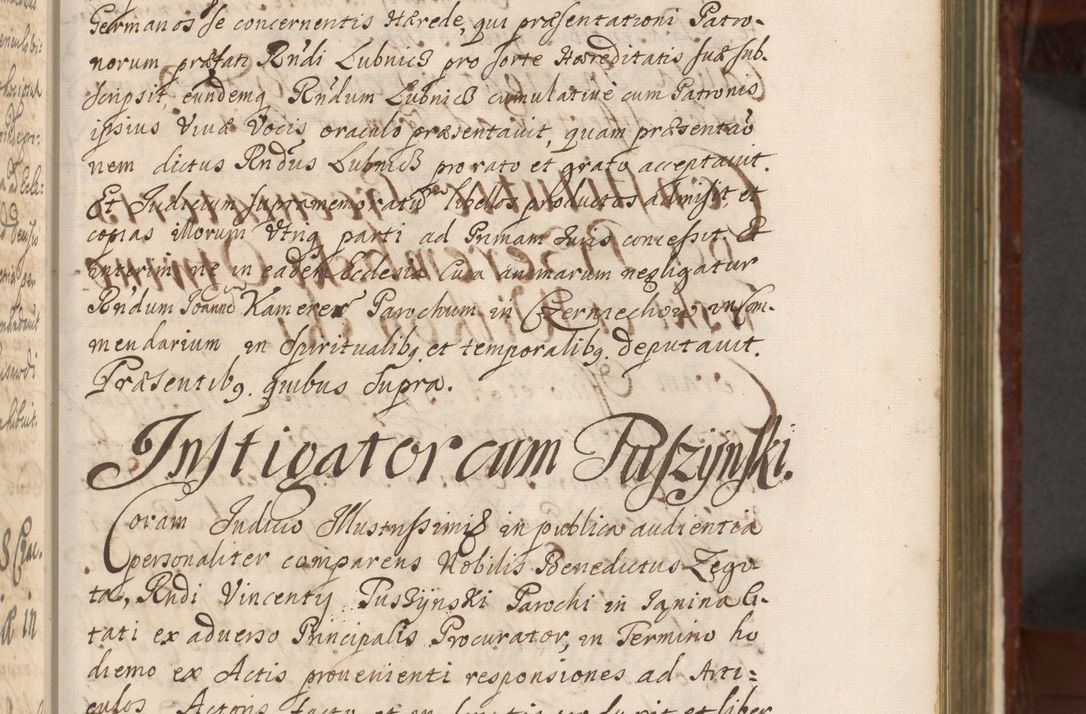 Germanos se concernentis Hærede, qui præsentationi Patro-
norum præfati Rndi Lubnicz pro sorte Hæreditatis suæ sub-
scripsit, eundemq Rndum Lubnicz cumulative cum Patronis
ipsius vivæ vocis oraculo præsentavit, quam præsentāo
nem dictus Rndus Lubnicz pro rato et grato acceptavit.
Et Judicium supramemoratū libellos productos admisit et
copias illorum vtriq parti ad Primam Juris concessit Et
interim ne in eadem Ecclesia Cura animarum negligatur
Rndum Joannē Kamerer Parochum in Czermechow in Com-
mendarium in spiritualibq. et temporalibq. deputavit.
Præsentibq. quibus supra.
Instigator cum Puszynski.
Coram Judicio Illustrissimi in publica audientia
personaliter comparens Nobilis Benedictus Zego
ta, Rndi Vincenty Puszynski Parochi in Janina Ci-
tati ex adverso Principalis Procurator, in Termino ho
dierno ex Actis provenienti responsiones ad Arti=
culos Actoris factu et in et liber